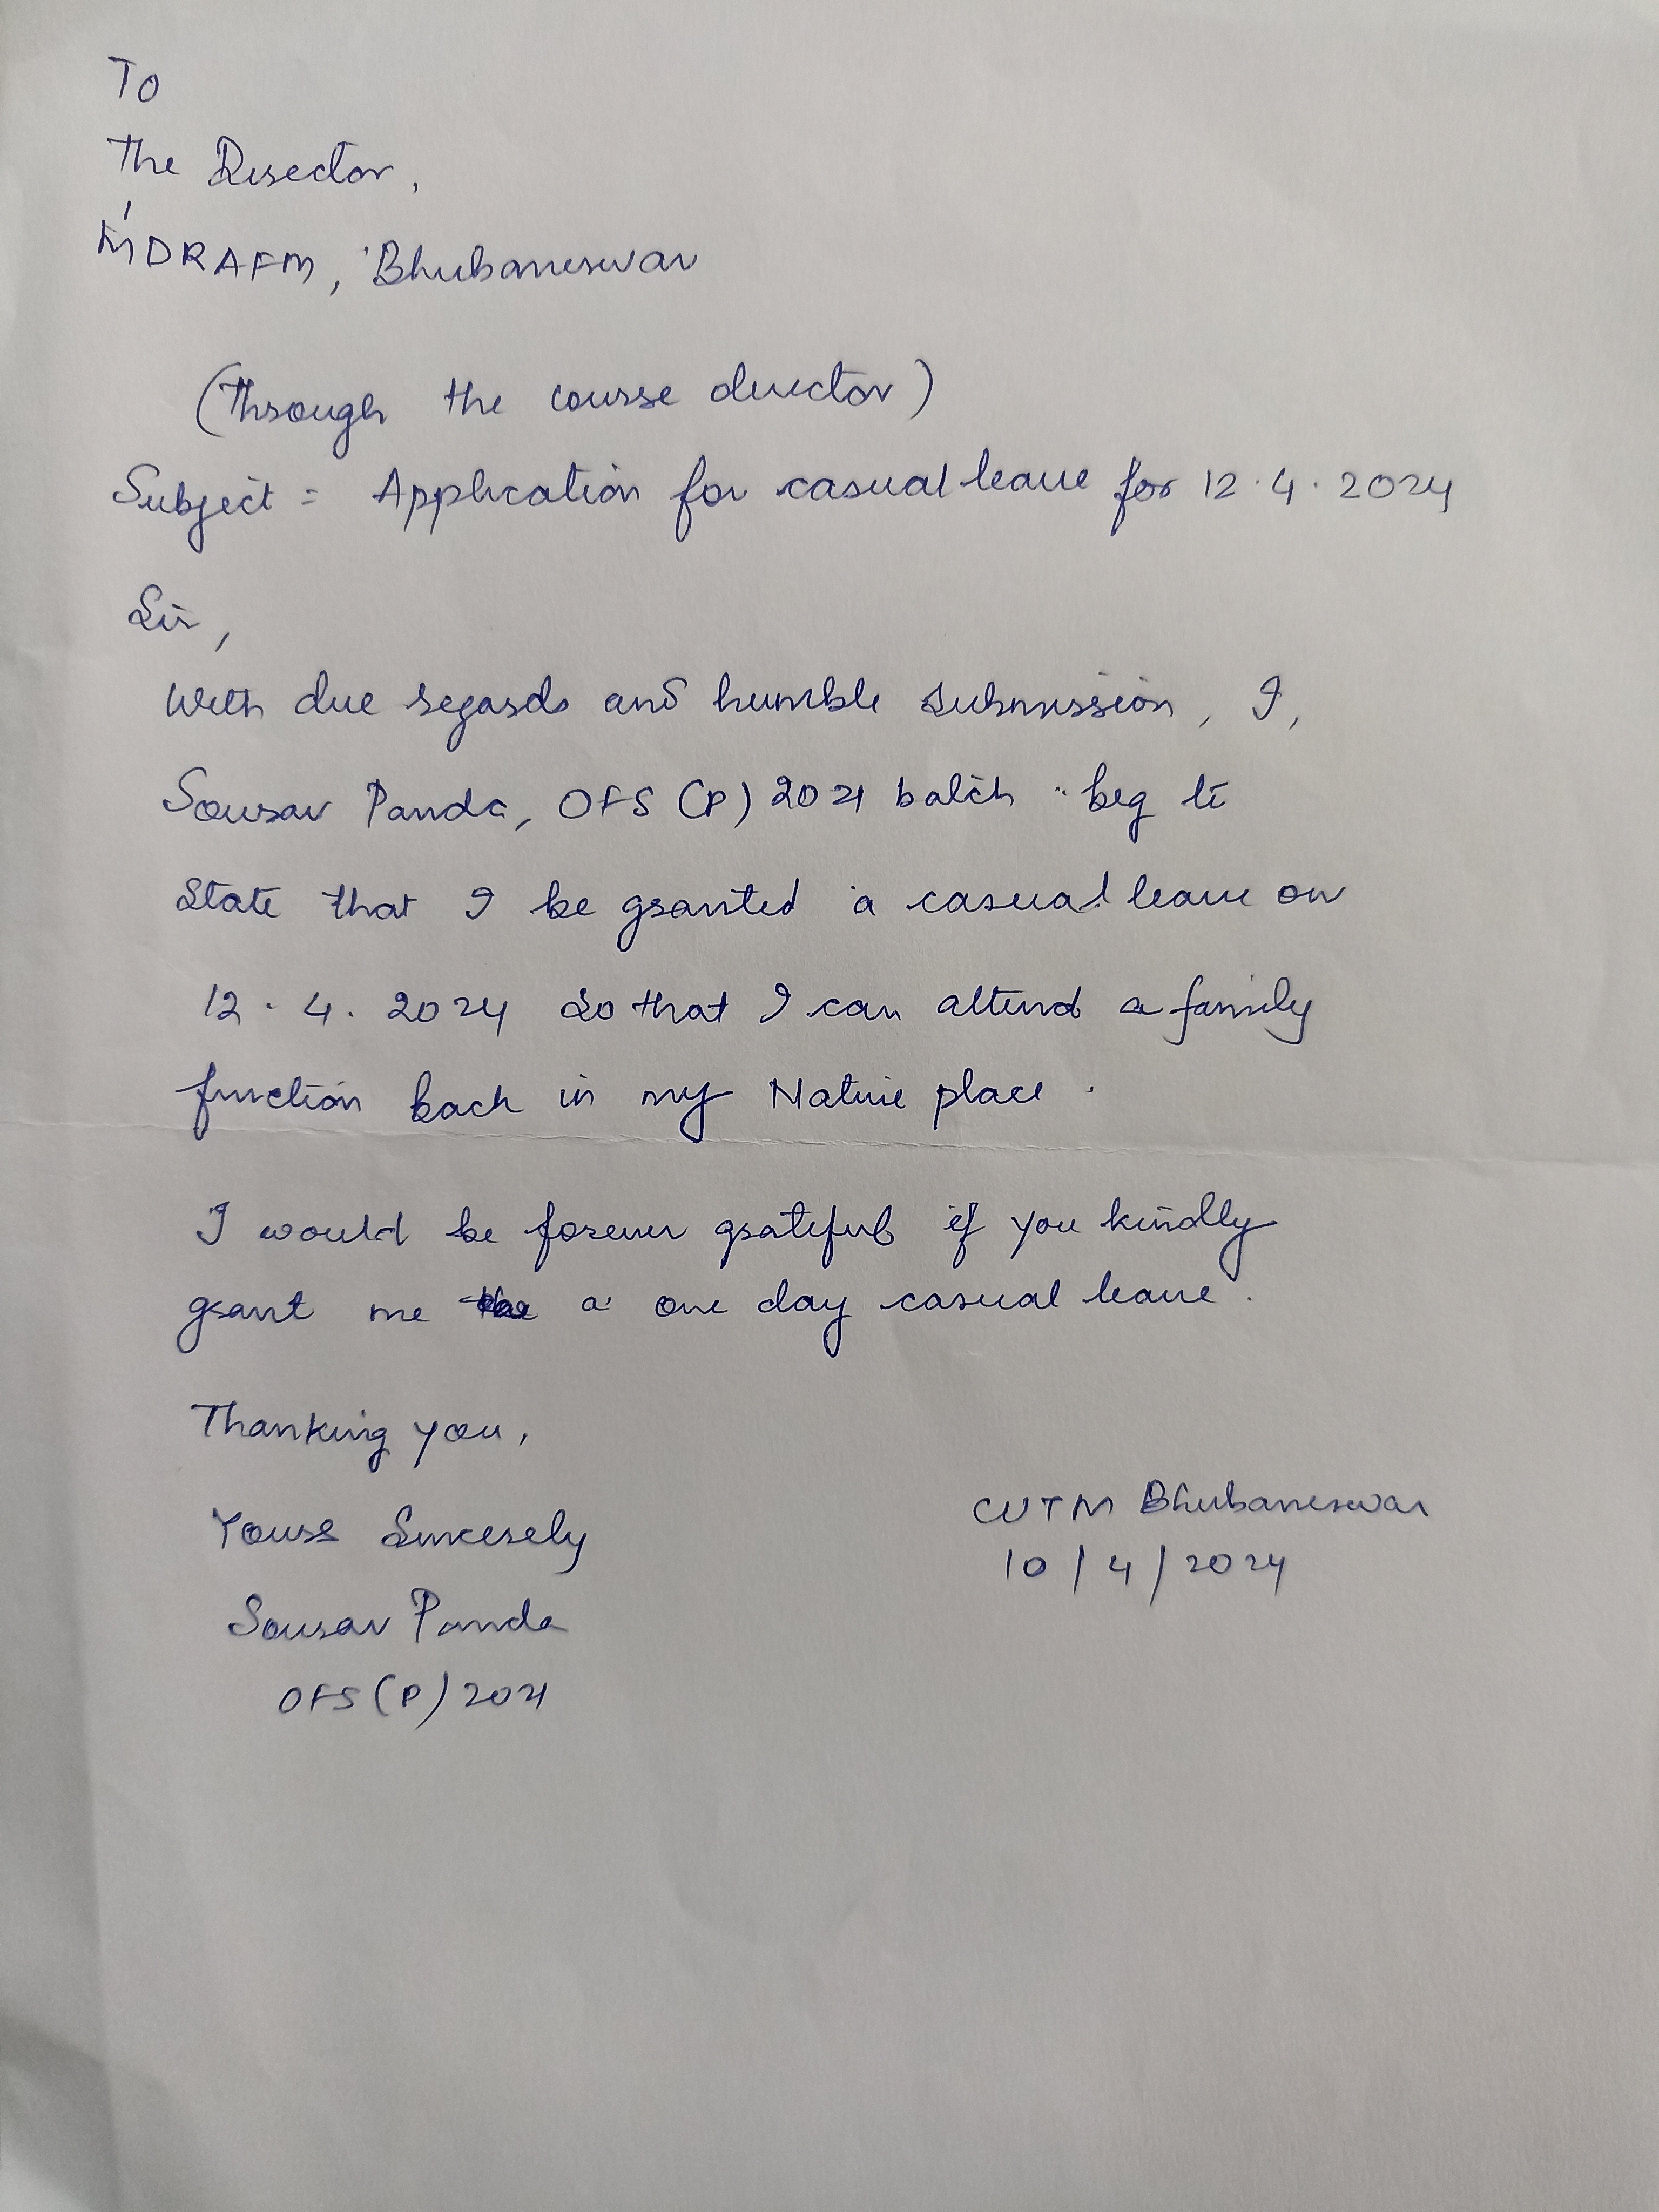 To
The Director,
MDRAFM, Bhubaneswar
(Through the course director)
Subject = Application for casual leave for 12.4.2024
Sir,
With due regards and humble submission, I,
Sourav Panda, OFS (P) 2021 batch beg to
State that I be granted a casual leave on
12.4.2024 so that I can attend a family
function back in my Native place.
I would be forever grateful if you kindly
grant me a one day casual leave.
Thanking you,
Yours Sincerely
CUTM Bhubaneswar
10/4/2024
Sourav Panda
OFS (P) 2021